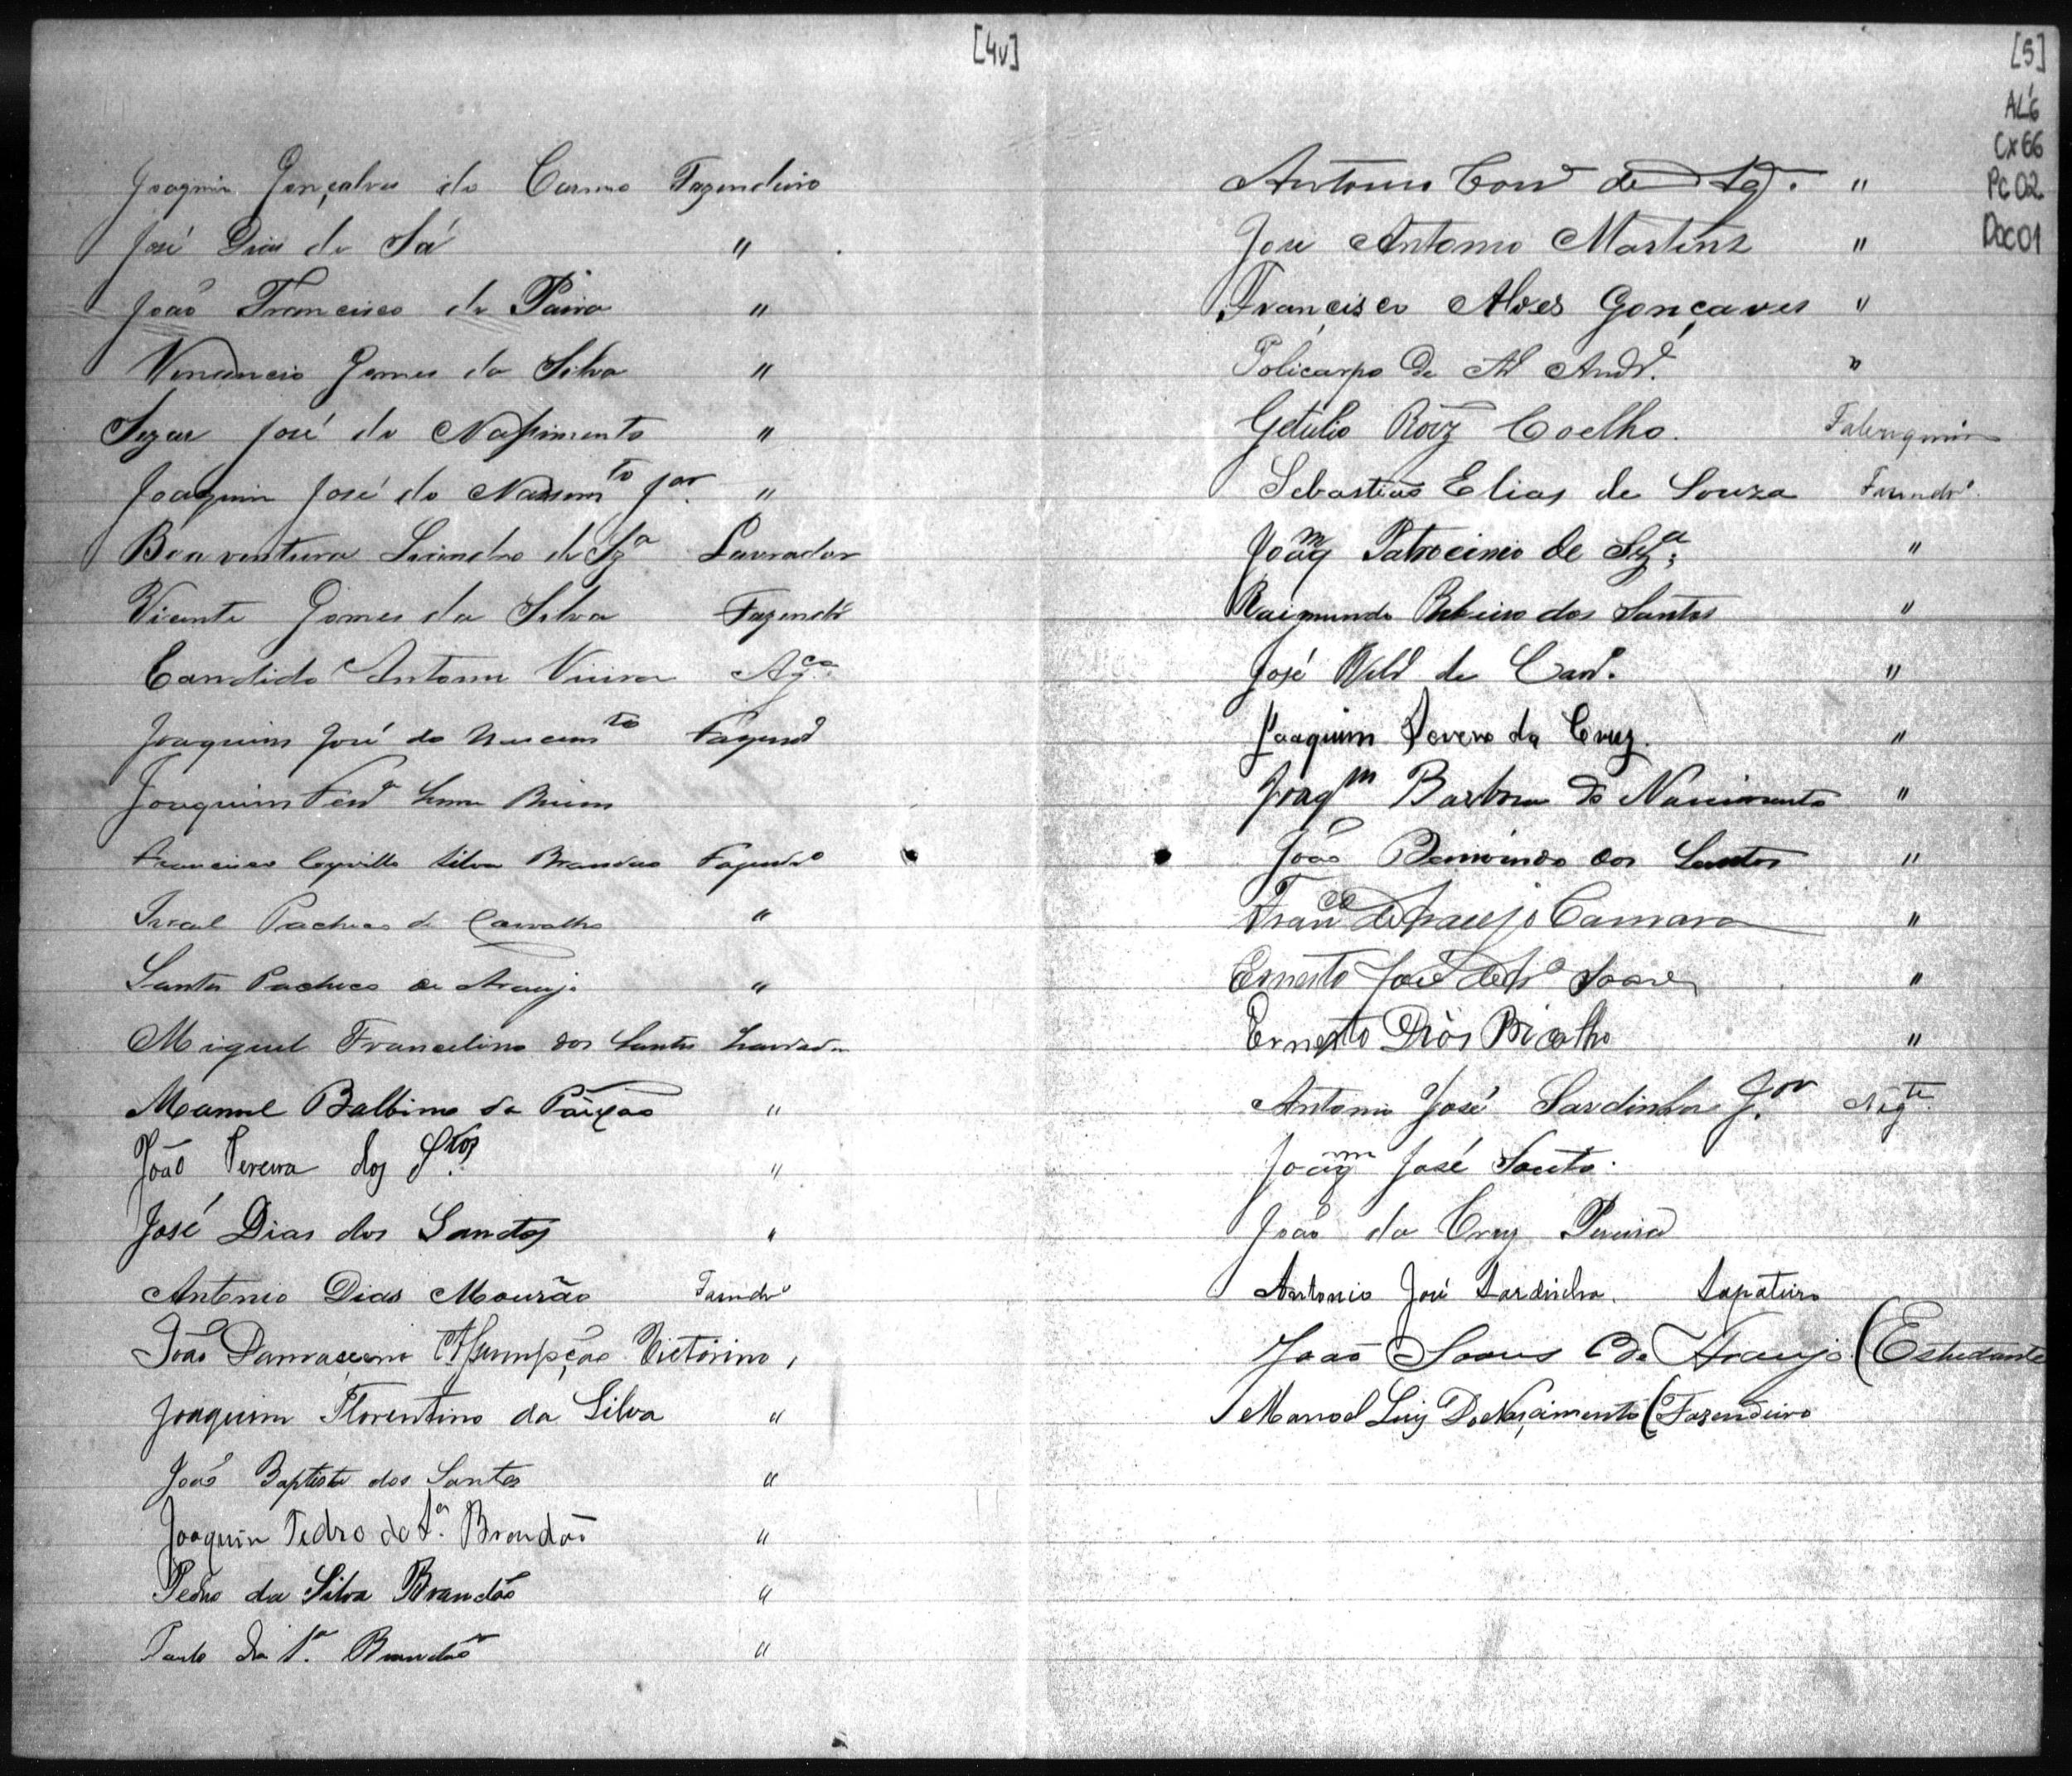 [4v]
Joaquim Gonçalves do Carmo Fazendeiro
José Dias de Sá "
João Francisco de Paiva "
Venancio Gomes da Silva "
Sezar José do Nassimento "
Joaquim José do Nassim.to J.or "
Boaventura de Sz.a Lavrador
Vicente Gomes da Silva Fazendr.o
Candido Antonio Vieira Ag.co
Joaquim José do Nascim.to Fazend.o
Joaquim
Francisco Cyrillo Silva Brandão Fazendr.o
Pacheco de Carvalho "
Santos Pacheco de Araujo "
Miguel Francelino dos Santos Lavrador
Manoel Balbino da Paixão "
João Pereira dos S.tos "
José Dias dos Sanctos "
Antonio Dias Mourão Fasendr.o
João Damasceno Assumpção Victorino,
Joaquim Florentino da Silva "
João Baptista dos Santos "
Joaquim Pedro da S.a Brandão "
Pedro da Silva Brandão "
Paulo da S.a Brandão "
[5]
AL6
Cx66
Pc02
Doc01
Antonio de "
Jose Antonio Martins "
Francisco Alves Gonçaves "
Policarpo de Al Andr.e "
Getulio Roiz Coelho.
Sebastião Elias de Souza Fasendr.o
Joaq.m Patrocinio de Sz.a "
Raimundo Ribeiro dos Santos "
José de "
Joaquim Severo da Cruz. "
Joaq.m Barbosa do Nascimento "
João Bemvindo dos Santos "
Fran.co de Araujo Camara "
Ernesto José de "
Ernesto Dios Bicalho "
Antonio José Sardinha J.or Neg.te
Joaq.m José Souto.
João da Cruz Pereira
Antonio José Sardinha. Sapateiro
João Soares de Araujo (Estudante
Manoel Luiz Do Nasçimento (Fazendeiro